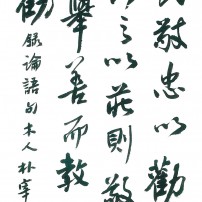 民敬忠以勸
之以莊則敬
舉善而教
勸
錄論語句木人朴宰